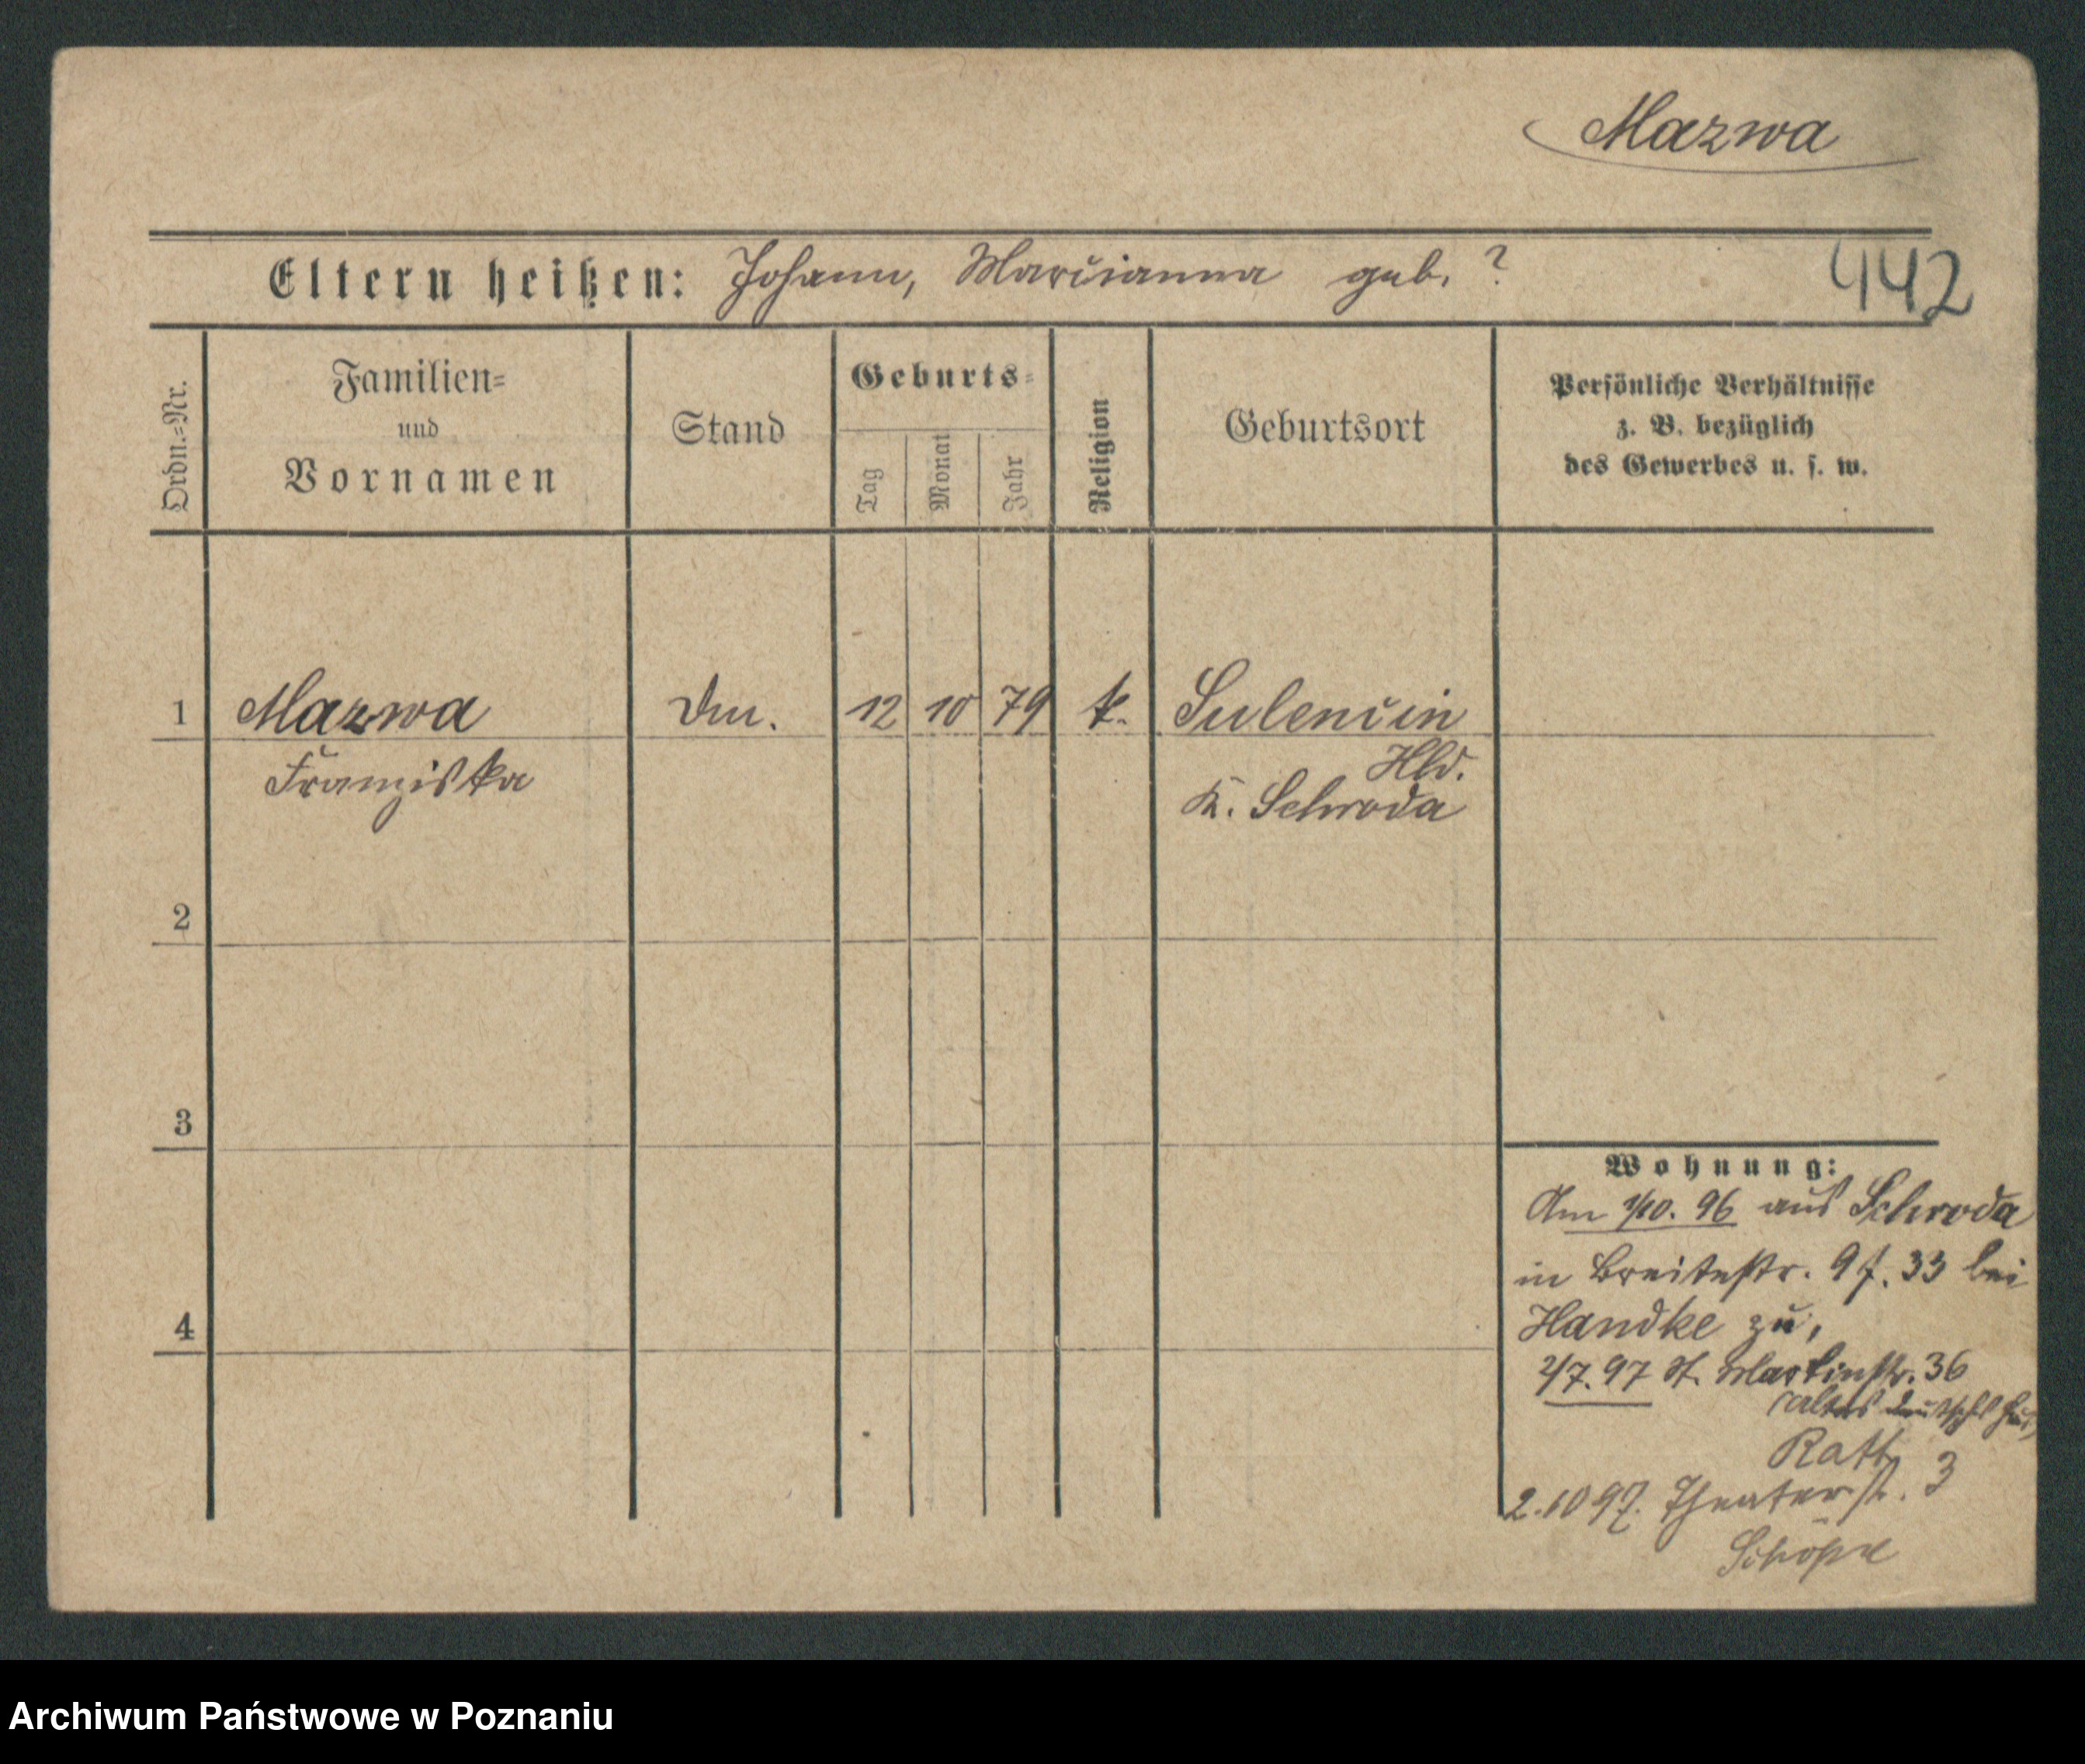 Mazwa
Eltern heißen: Johann, Marianna geb. ?
442
Ordn.=Nr.
Familien=
und
Vornamen
Stand
Geburts=
Tag
Monat
Jahr
Religion
Geburtsort
Persönliche Verhältnisse
z. B. bezüglich
des Gewerbes u. s. w.
1 Mazwa 12 10 79 k. Sulencin
Franziska Hld.
K. Schroda
2
3
4
Wohnung:
Am 1/10. 96 aus Schroda
in Breitestr. 9 f. 33 bei
Handke zu,
2/7. 97 St. Martinstr. 36
Ratt
2.10 97. Theaterst. 3
Schöpe
Archiwum Państwowe w Poznaniu